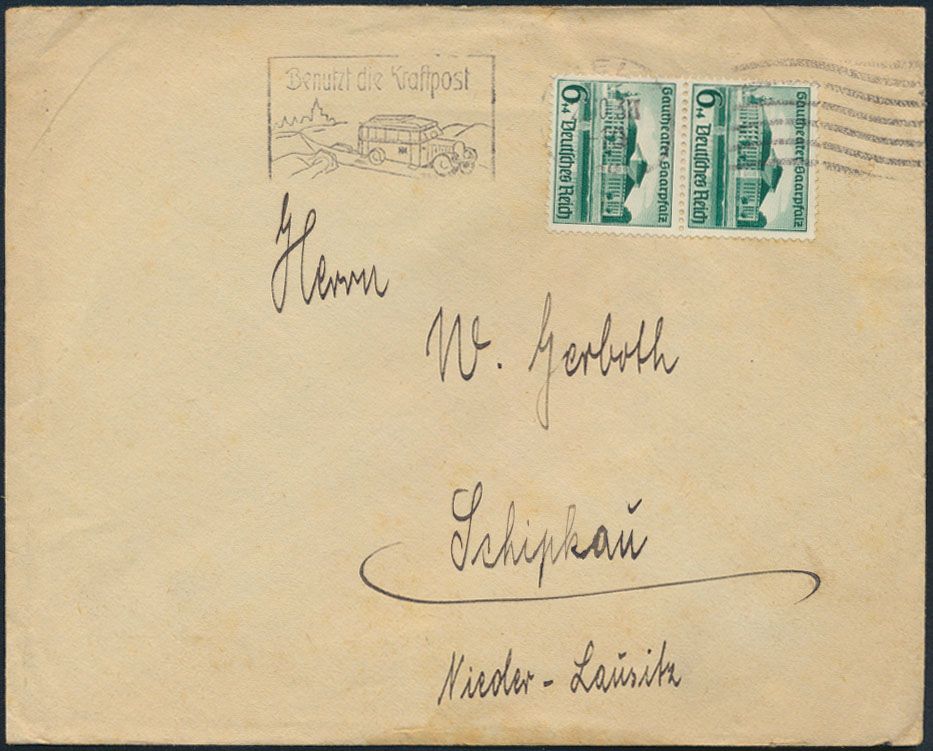 Benutzt die Kraftpost
6+4 Deutsches Reich
Gautheater Saarpfalz
6+4 Deutsches Reich
Gautheater Saarpfalz
Herrn
W. Gerboth
Schipkau
Nieder-Lausitz